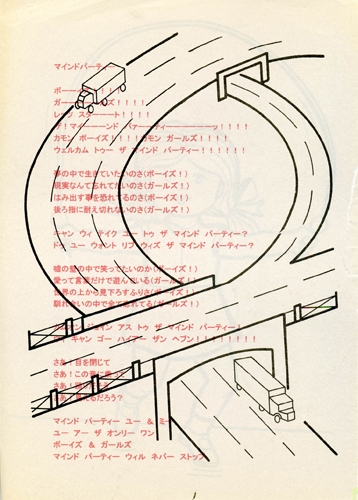 マインドパーティー
ボーーイズ！！！！
ガールズ！！！！
レッツ スターーート！！！！
ザ！マイーーーンド パァーーティーーーーーーッ！！！！
カモン ボーイズ！！！！カモン ガールズ！！！！
ウェルカム トゥー ザ マインド パーティー！！！！！！
夢の中で生きていたいのさ(ボーイズ！)
現実なんて忘れてたいのさ(ガールズ！)
はみ出す事を恐れてるのさ(ボーイズ！)
後ろ指に耐え切れないのさ(ガールズ！)
キャン ウィ テイク ユー トゥ ザ マインド パーティー？
ドゥ ユー ウォント リブ ウィズ ザ マインド パーティー？
嘘の壁の中で笑ってたいのか(ボーイズ！)
愛って言葉だけで遊んでいる(ガールズ！)
世界の上から見下ろすふりさ(ボーイズ！)
馴れ合いの中で全て忘れてる(ガールズ！)
ジョイン アス トゥ ザ マインド パーティー！
キャン ゴー ハイアー ザン ヘブン！！！！！！！！
さあ！目を閉じて
さあ！この
さあ！
だろう？
マインド パーティー ユー ＆ ミー
ユー アー ザ オンリー ワン
ボーイズ ＆ ガールズ
マインド パーティー ウィル ネバー ストップ